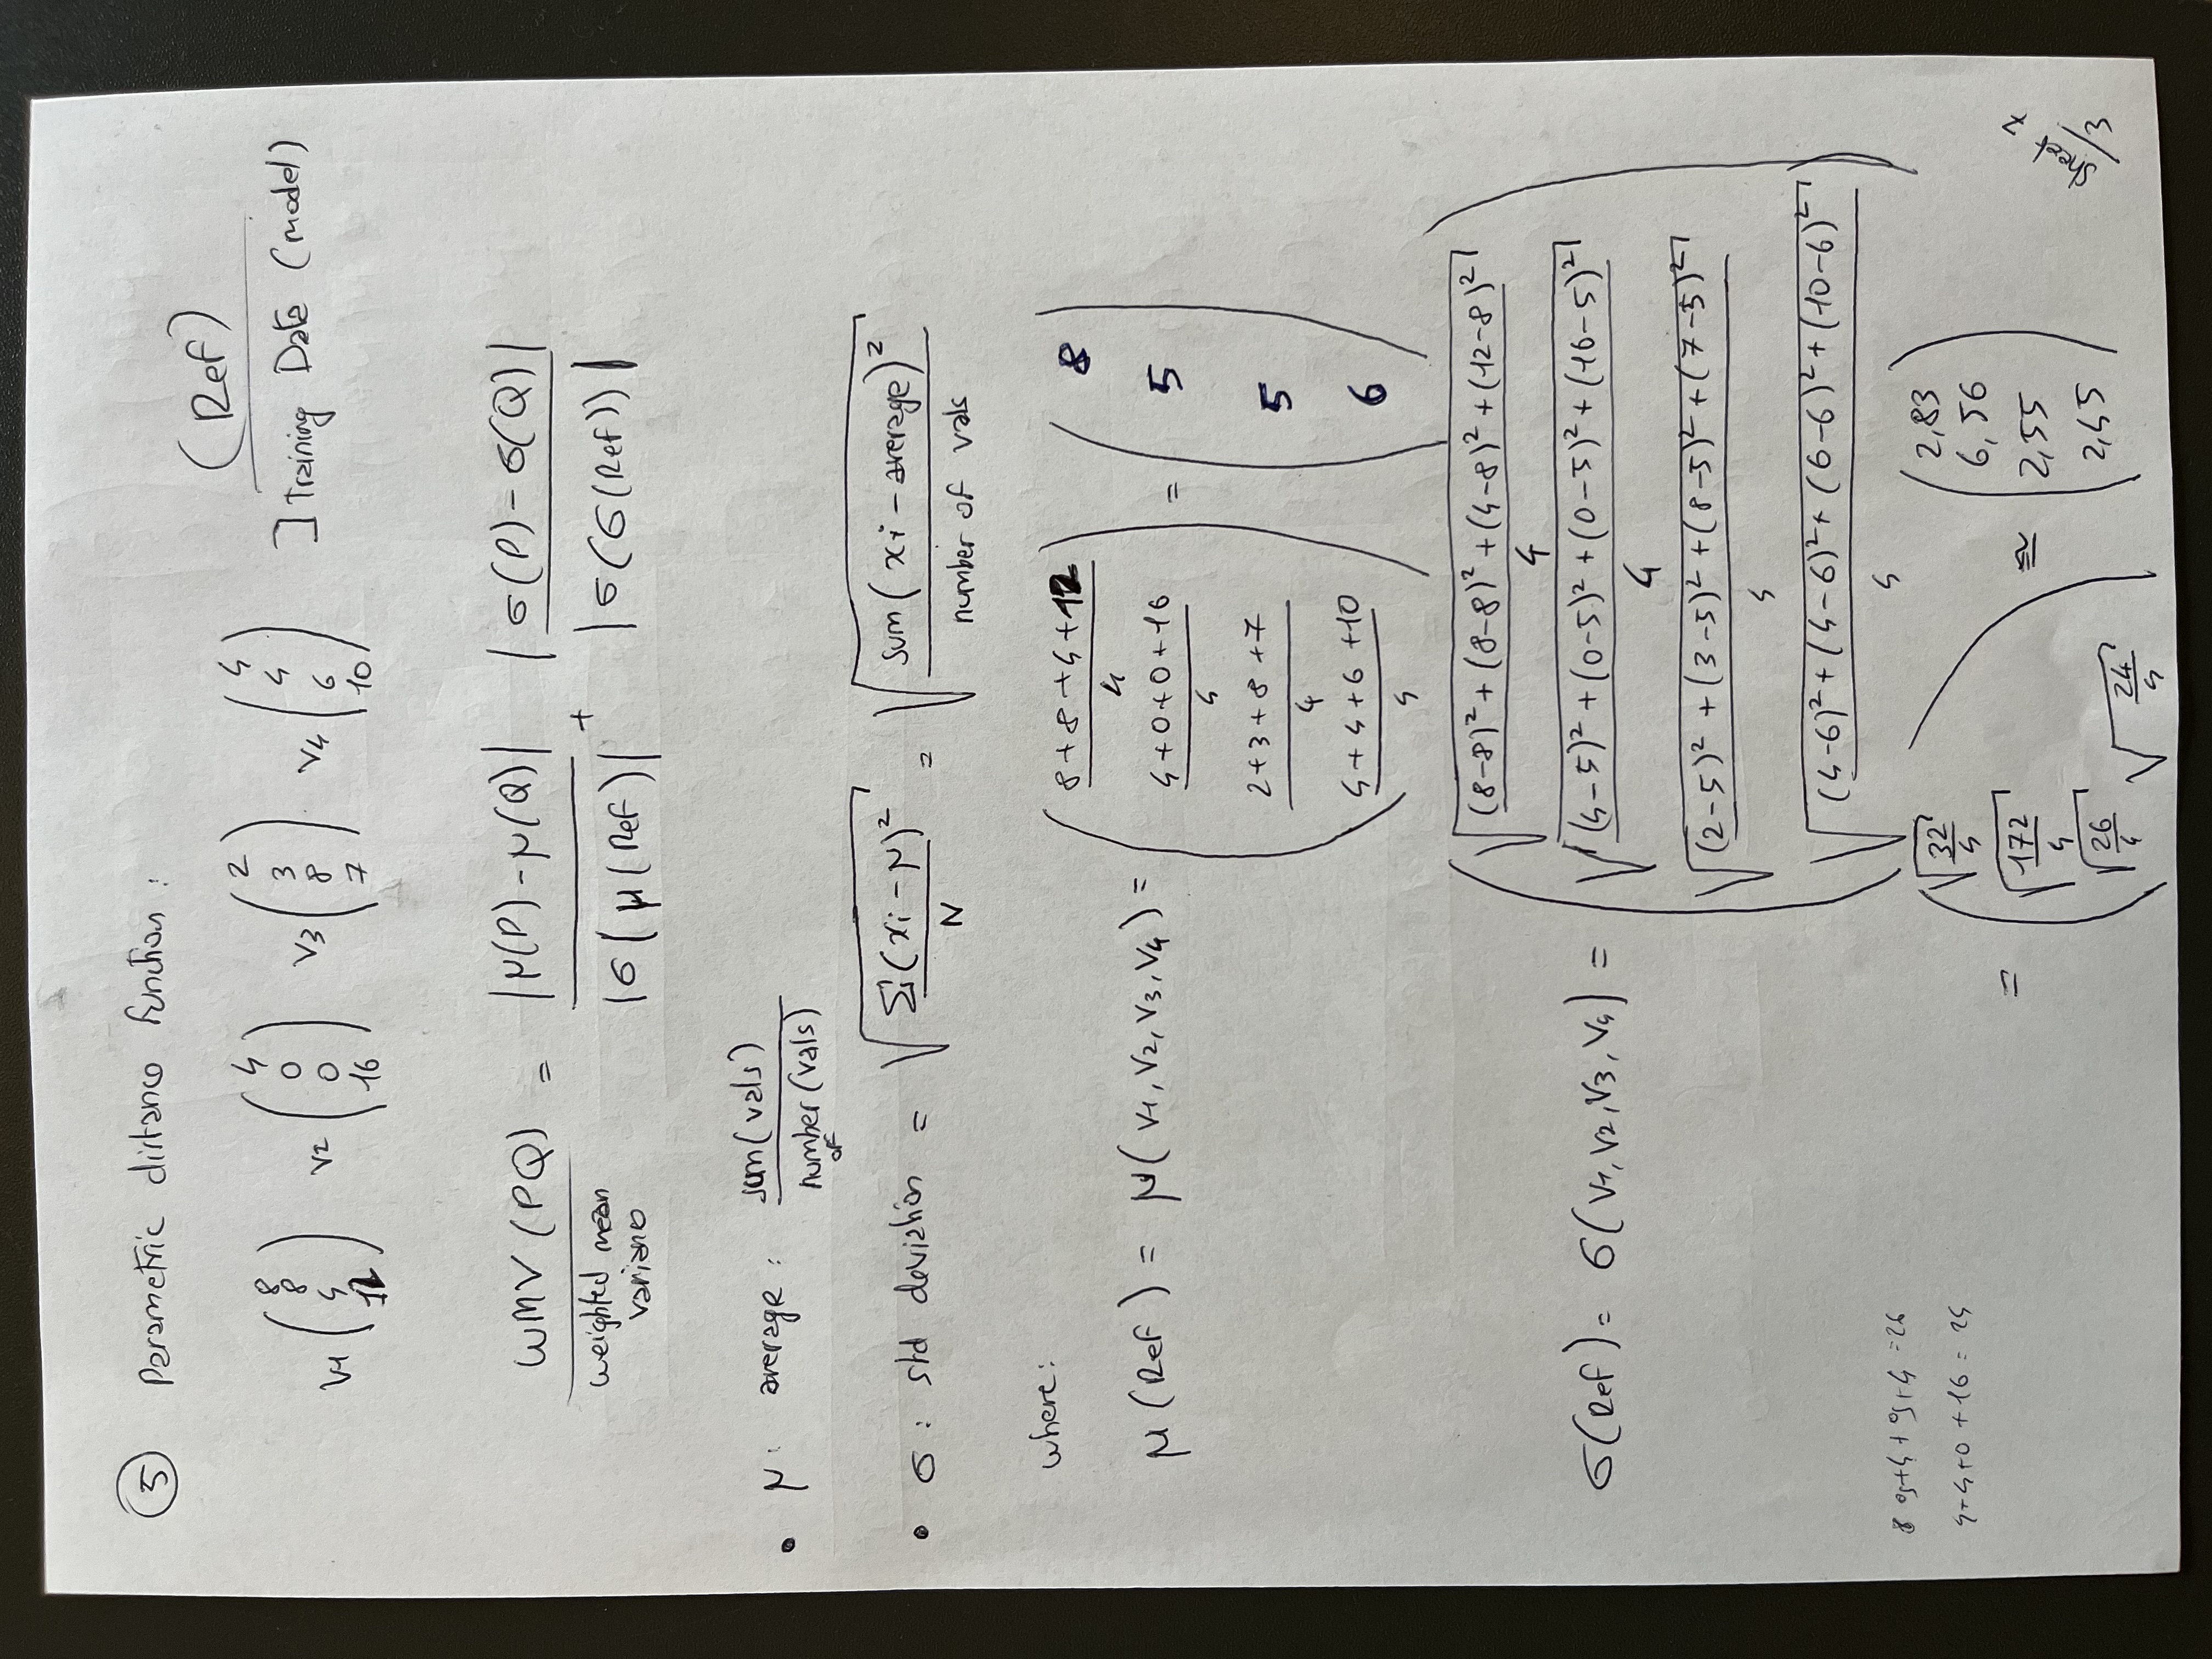 5 Parametric distance function:
(Ref)
V1 (8 8 4 12) V2 (4 0 0 16) V3 (2 3 8 7) V4 (4 4 6 10) ] Training Data (model)
WMV (PQ) = |μ(P) - μ(Q)| / |σ(μ(Ref)| + |σ(P) - σ(Q)| / |σ(σ(Ref))|
weighted mean
variance
• μ: average: sum(vals) / number of (vals)
• σ: std deviation = √(Σ(xi - μ)² / N) = √(sum(xi - average)² / number of vals)
where:
μ(Ref) = μ(V1, V2, V3, V4) = ( (8+8+4+12)/4
(4+0+0+16)/4
(2+3+8+7)/4
(4+4+6+10)/4 ) = (8 5 5 6)
σ(Ref) = σ(V1, V2, V3, V4) = ( √((8-8)² + (8-8)² + (4-8)² + (12-8)² / 4)
√((4-5)² + (0-5)² + (0-5)² + (16-5)² / 4)
√((2-5)² + (3-5)² + (8-5)² + (7-5)² / 4)
√((4-6)² + (4-6)² + (6-6)² + (10-6)² / 4) )
= ( √(32/4) √(172/4) √(26/4) √(24/4) ) ≅ (2,83 6,56 2,55 2,45)
4+4+0+16 = 24
sheet 7/3